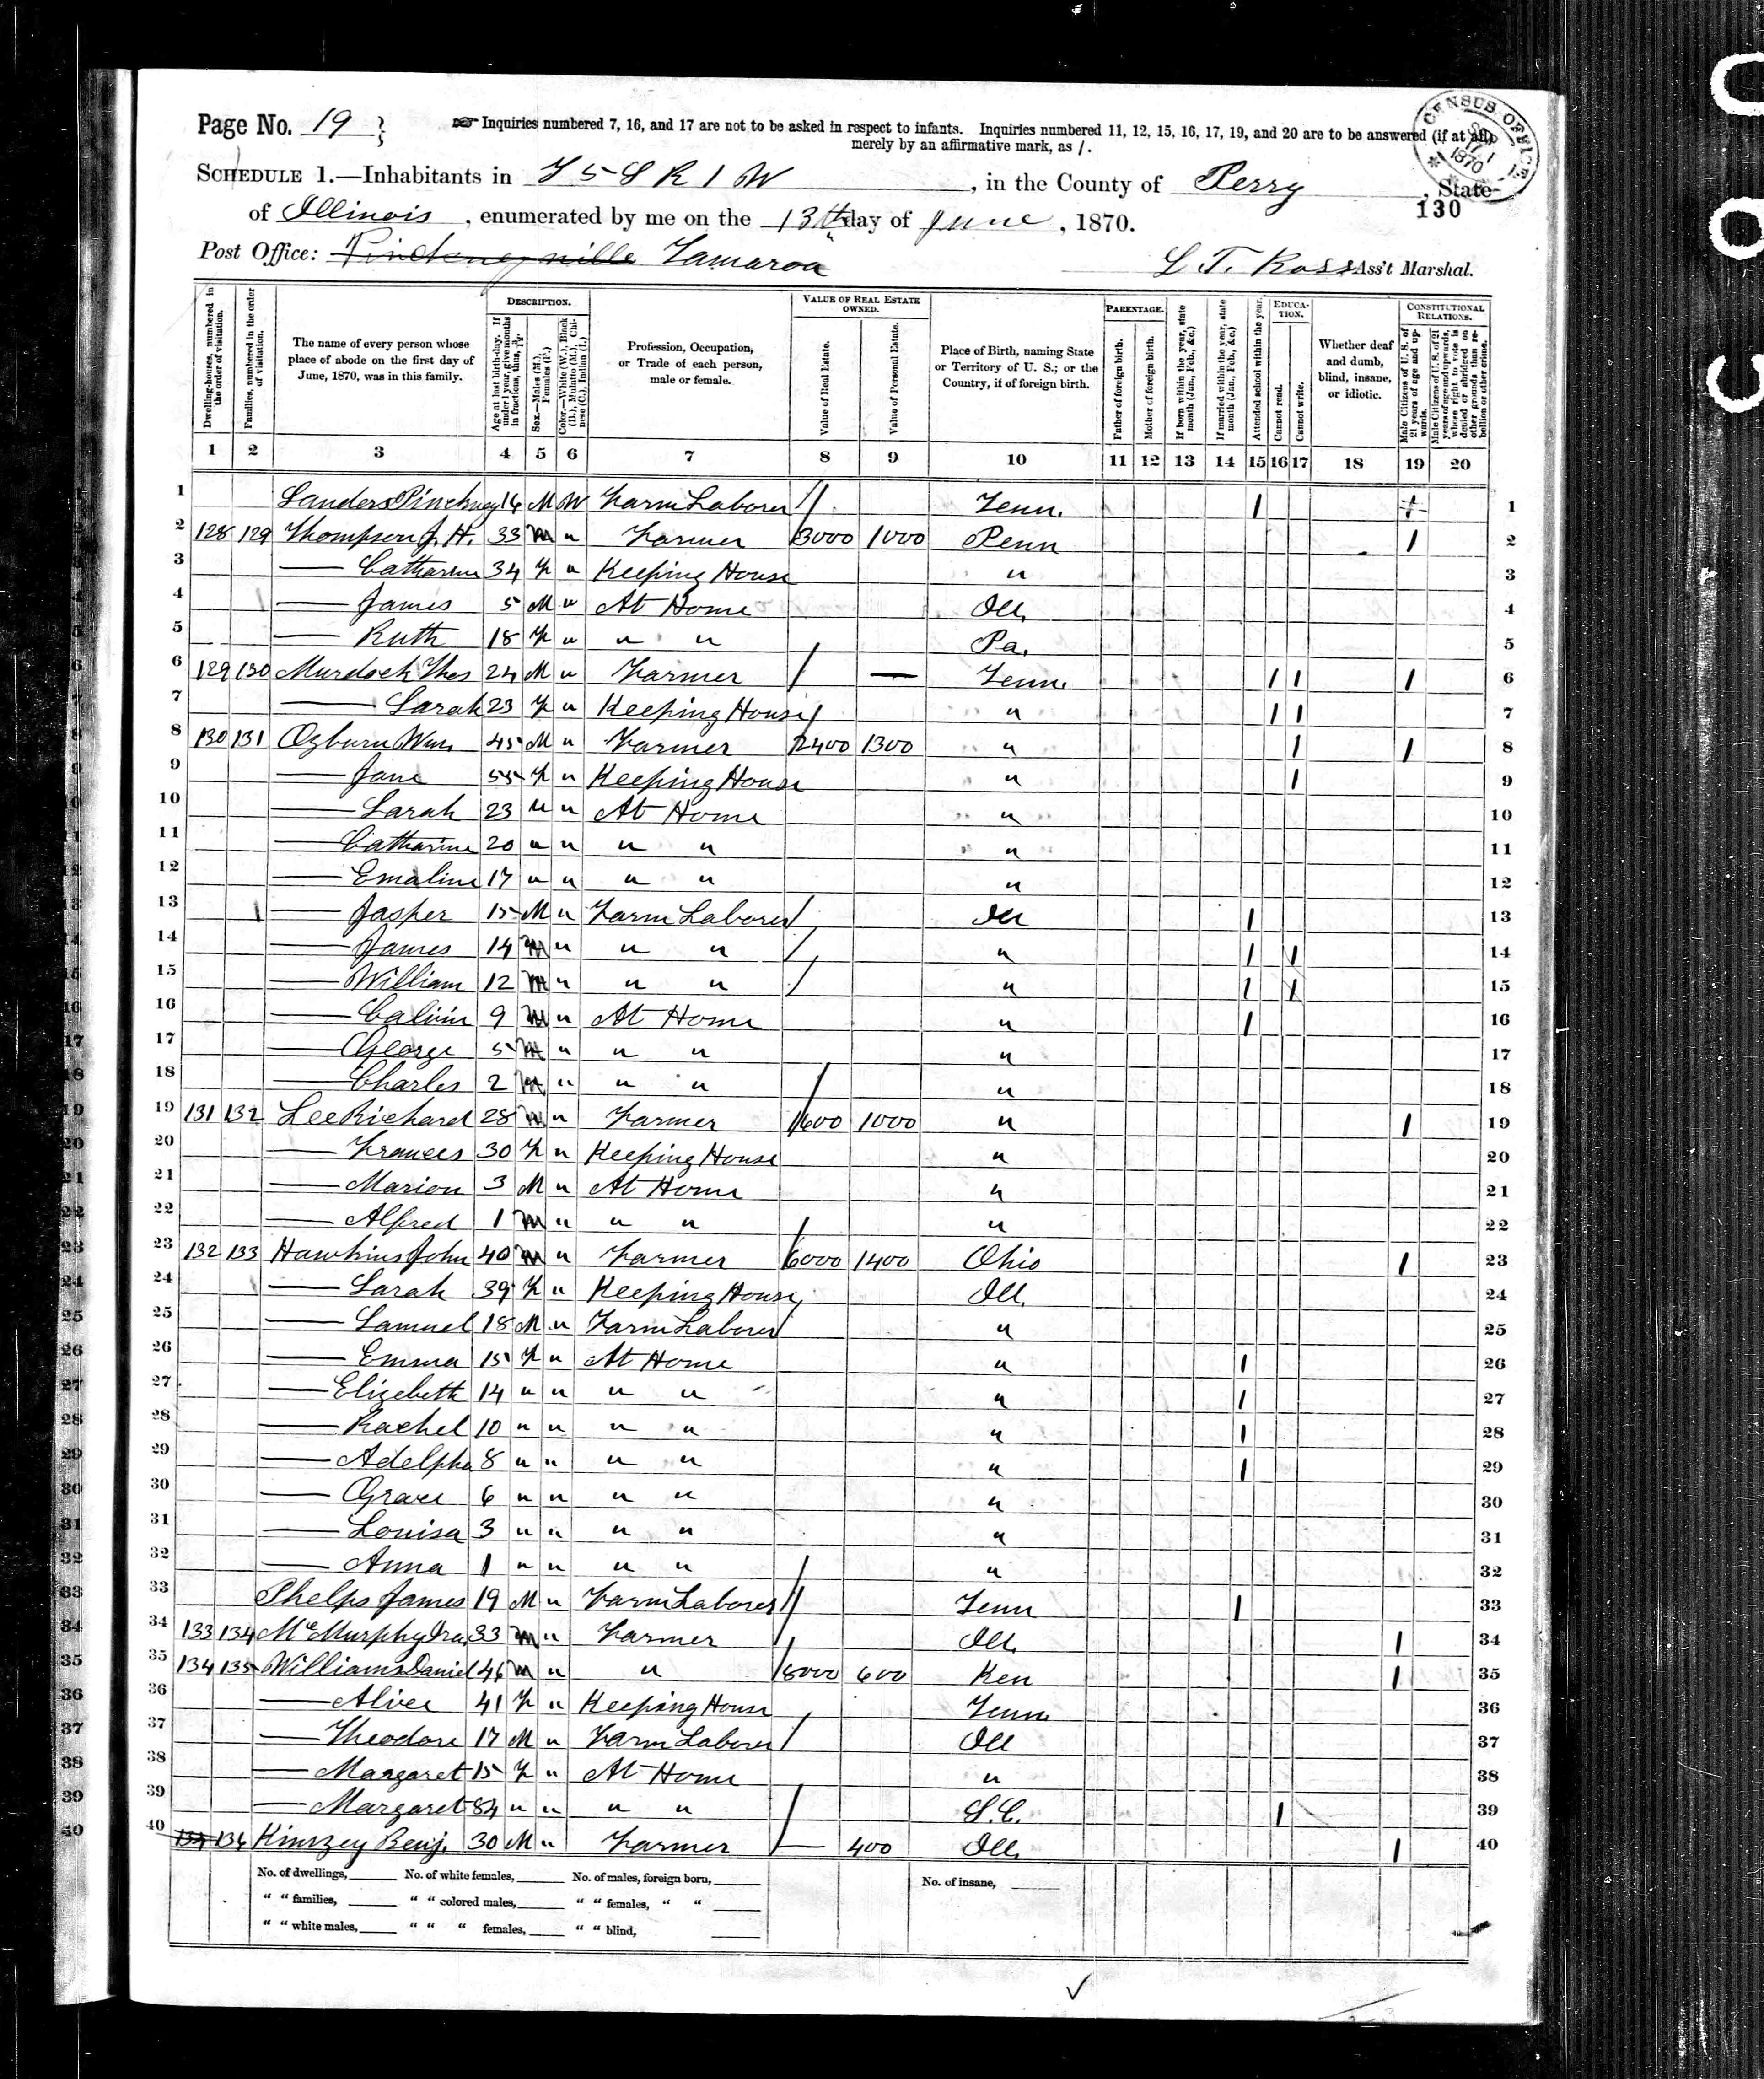 COU
CENSUS OFFICE 1870
Page No. 19 Inquiries numbered 7, 16, and 17 are not to be asked in respect to infants. Inquiries numbered 11, 12, 15, 16, 17, 19, and 20 are to be answered (if at all)
merely by an affirmative mark, as /.
SCHEDULE 1.—Inhabitants in T 5 S R 1 W, in the County of Perry, State
of Illinois, enumerated by me on the 13th day of June, 1870.
130
Post Office: Pinckneyville Tamaroa L. T. Ross Ass't Marshal.
Dwelling-houses, numbered in the order of visitation.
Families, numbered in the order of visitation.
The name of every person whose place of abode on the first day of June, 1870, was in this family.
DESCRIPTION.
Age at last birth-day. If under 1 year, give months in fractions, thus, 3/12.
Sex.—Males (M.), Females (F.)
Color.—White (W.), Black (B.), Mulatto (M.), Chinese (C.), Indian (I.)
Profession, Occupation, or Trade of each person, male or female.
VALUE OF REAL ESTATE OWNED.
Value of Real Estate.
Value of Personal Estate.
Place of Birth, naming State or Territory of U. S.; or the Country, if of foreign birth.
PARENTAGE.
Father of foreign birth.
Mother of foreign birth.
If born within the year, state month (Jan., Feb., &c.)
If married within the year, state month (Jan., Feb., &c.)
Attended school within the year.
EDUCATION.
Cannot read.
Cannot write.
Whether deaf and dumb, blind, insane, or idiotic.
CONSTITUTIONAL RELATIONS.
Male Citizens of U. S. of 21 years of age and upwards.
Male Citizens of U. S. of 21 years of age and upwards, whose right to vote is denied or abridged on other grounds than rebellion or other crime.
1 2 3 4 5 6 7 8 9 10 11 12 13 14 15 16 17 18 19 20
1 Sanders Pinckney 16 M W Farm Laborer Tenn. 1 1 1
2 128 129 Thompson J. H. 33 M " Farmer 3000 1000 Penn 1 2
3 — Catharine 34 F " Keeping House " 3
4 — James 5 M " At Home Ill. 4
5 — Ruth 18 F " " " Pa. 5
6 129 130 Murdock Thos 24 M " Farmer — Tenn. 1 1 1 6
7 — Sarah 23 F " Keeping House " 1 1 7
8 130 131 Ogburn Wm. 45 M " Farmer 2400 1300 " 1 1 8
9 — Jane 55 F " Keeping House " 1 9
10 — Sarah 23 " " At Home " 10
11 — Catharine 20 " " " " " 11
12 — Emaline 17 " " " " " 12
13 — Jasper 15 M " Farm Laborer Ill 1 13
14 — James 14 M " " " " 1 1 14
15 — William 12 M " " " " 1 1 15
16 — Calvin 9 M " At Home " 1 16
17 — George 5 M " " " " 17
18 — Charles 2 M " " " " 18
19 131 132 Lee Richard 28 M " Farmer 1600 1000 " 1 19
20 — Frances 30 F " Keeping House " 20
21 — Marion 3 M " At Home " 21
22 — Alfred 1 M " " " " 22
23 132 133 Hawkins John 40 M " Farmer 6000 1400 Ohio 1 23
24 — Sarah 39 F " Keeping House Ill. 24
25 — Samuel 18 M " Farm Laborer " 25
26 — Emma 15 F " At Home " 1 26
27 — Elizebeth 14 " " " " " 1 27
28 — Rachel 10 " " " " " 1 28
29 — Adelpha 8 " " " " " 1 29
30 — Grace 6 " " " " " 30
31 — Louisa 3 " " " " " 31
32 — Anna 1 " " " " " 32
33 Phelps James 19 M " Farm Laborer Tenn 1 33
34 133 134 McMurphy Ira 33 M " Farmer Ill. 1 34
35 134 135 Williams Daniel 46 M " " 8000 600 Ken 1 35
36 — Alice 41 F " Keeping House Tenn. 36
37 — Theodore 17 M " Farm Laborer Ill 37
38 — Margaret 15 F " At Home " 38
39 — Margaret 84 " " " " S.C. 1 39
40 134 Kimzey Benj. 30 M " Farmer — 400 Ill. 1 40
No. of dwellings, No. of white females, No. of males, foreign born, No. of insane,
" " families, " " colored males, " " females, " "
" " white males, " " " females, " " blind,